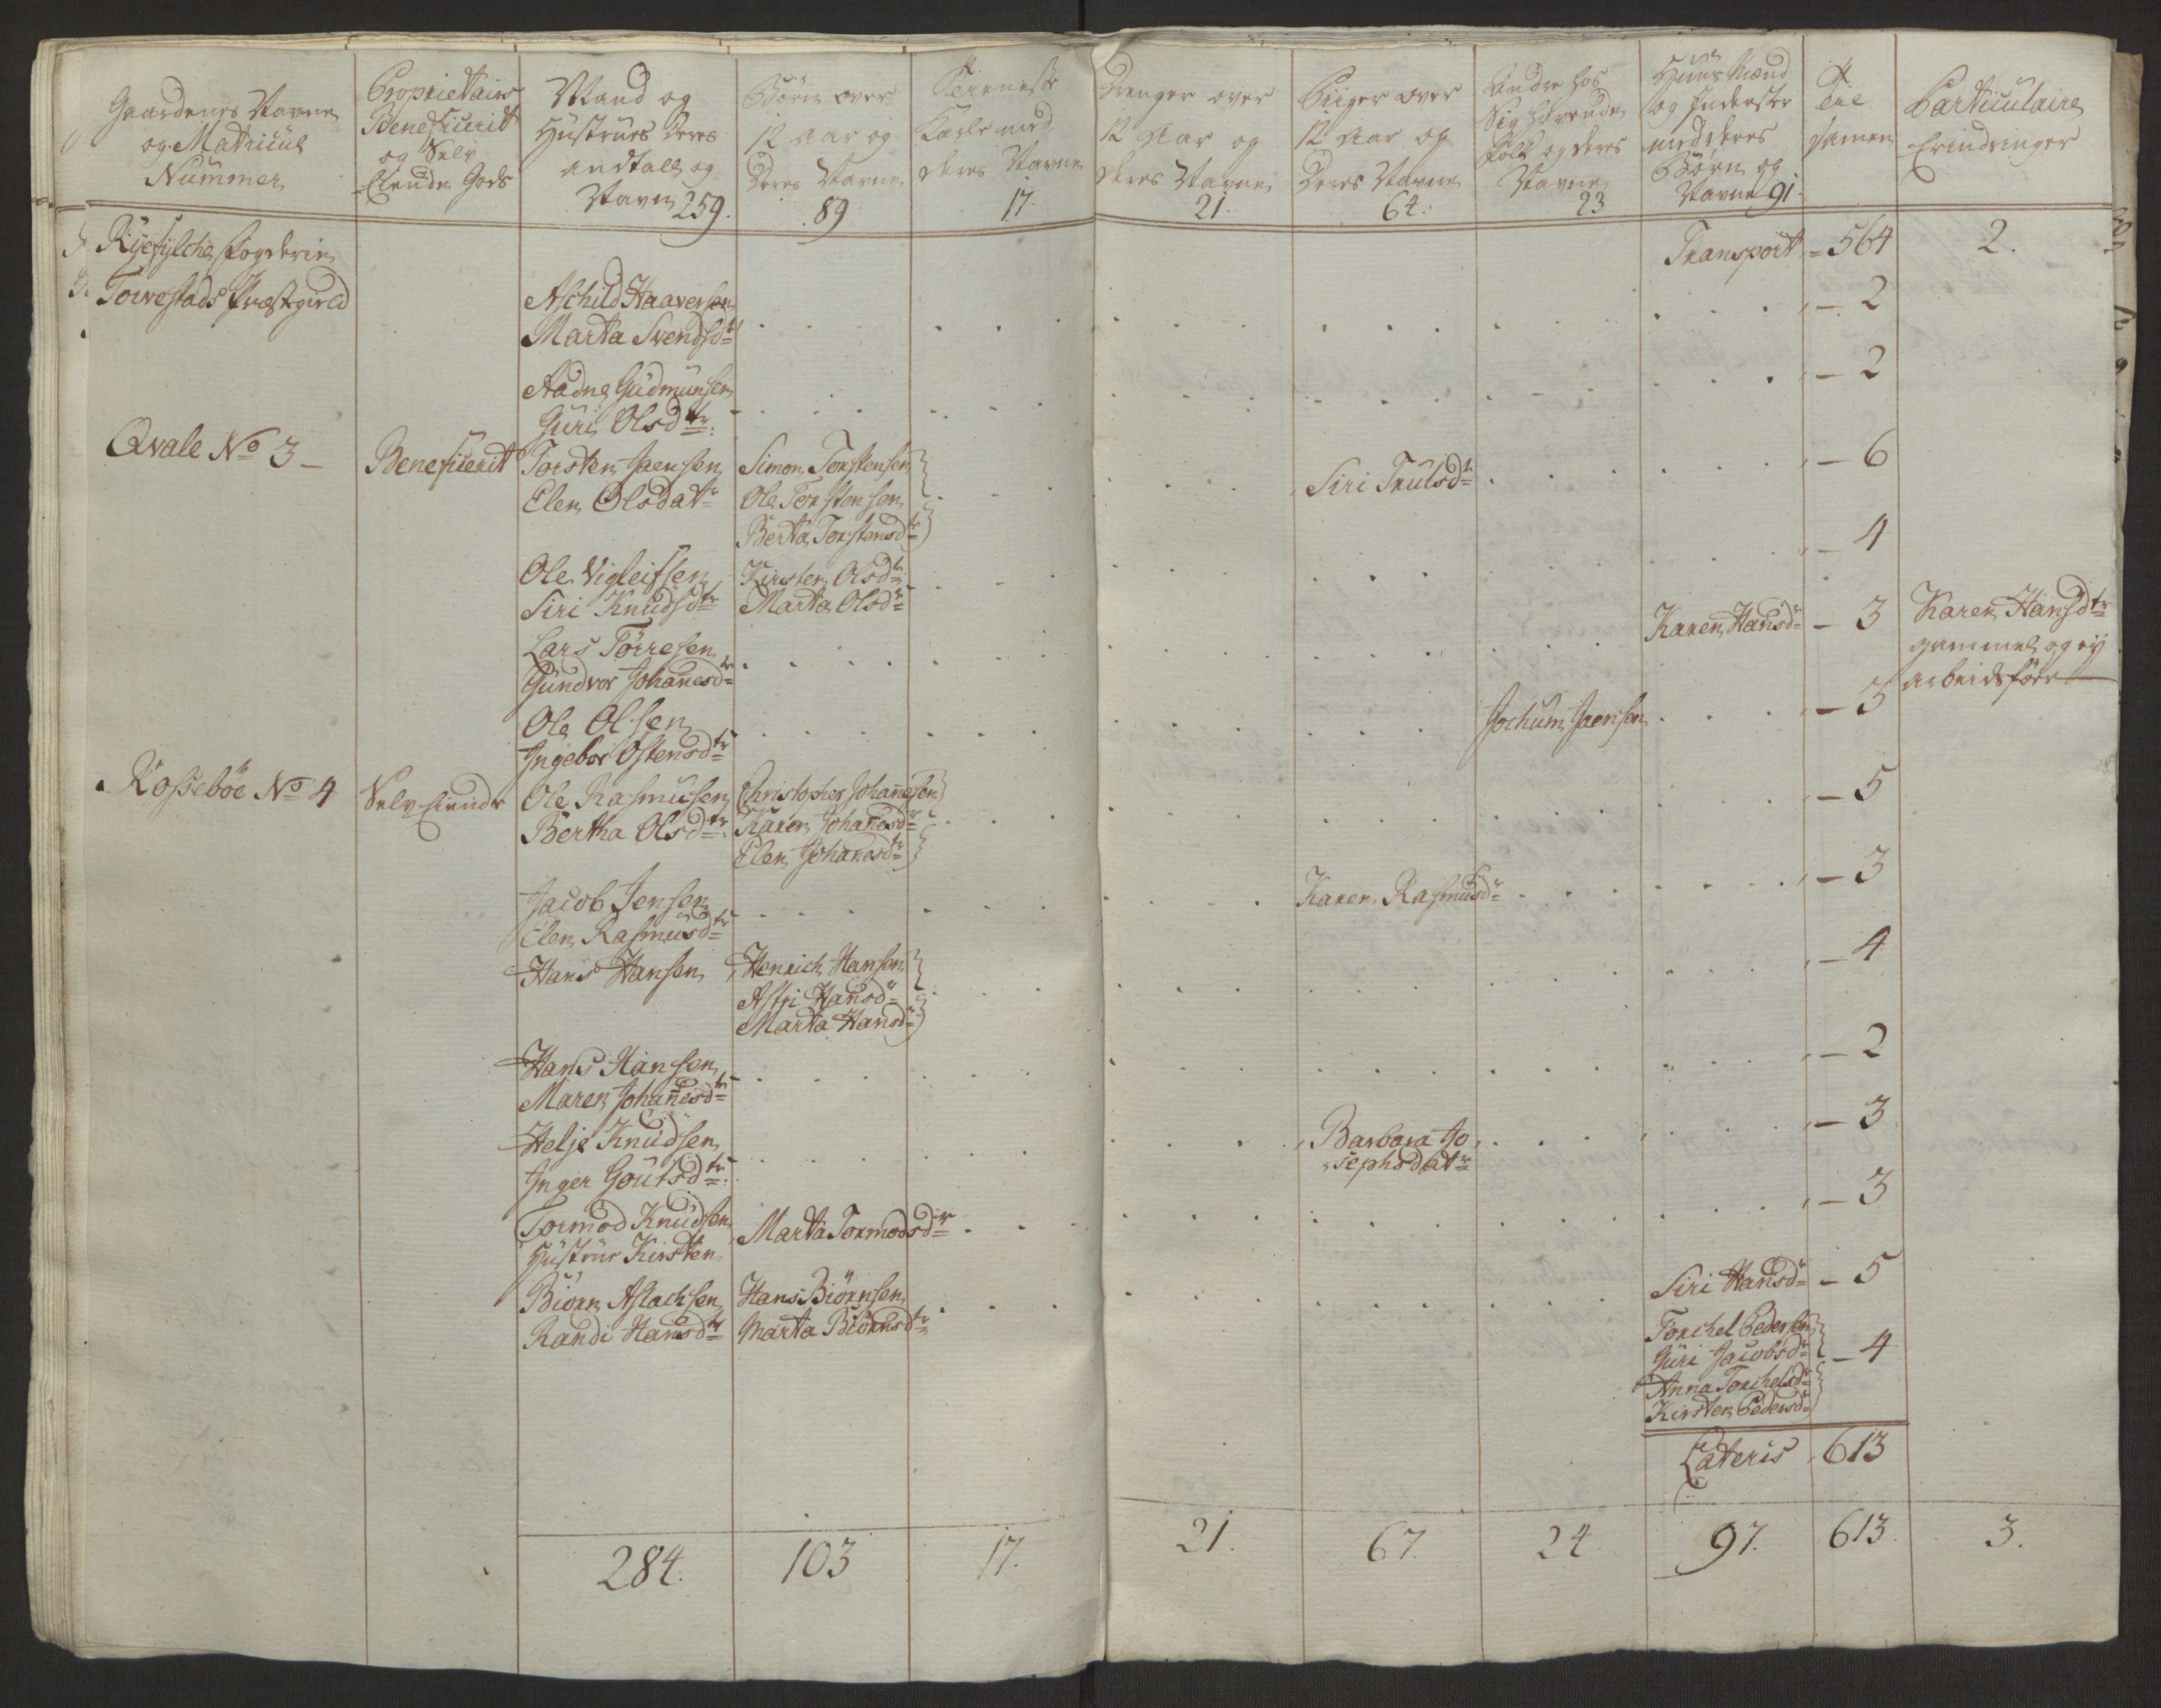 Gaardenes Navne
og Matricul
Nummer
Proprietairs
Beneficerit
og Selv
Eiende Gods
Mand og
Hustrues deres
andtall og
Navne 259.
Børn over
12 Aar og
Deres Navne
89
Tienneste
Karle med
deres Navne
17.
Drenger over
12 Aar og
deres Navne
21.
Piiger over
12 Aar og
Deres Navne
64.
Andre hos
Sig havende
folk og deres
Navne
23
Huus Mænd
og Inderster
med deres
Børn og
Navne 91.
Ere
samen
Particulaire
Erindringer
Ryefylche fogderie
Transport = 564
2.
Torvestads Præstgield
Aschild Haaversen
Marta Svendsdtr
- 2
Aadne Gudmunsen
Guri Olsdtr:
- 2
Qvale No 3 -
Beneficerit
Torsten Jaensen
Elen Olsdatr
Simon Torstensen
Ole Torstensen
Berta Torstensdtr
Siri Trulsdtr
- 6
Ole Vigleifsen
Siri Knudsdtr
Kirsten Olsdtr
Marta Olsdtr
- 4
Lars Tørresen
Gundvor Johanesdtr
Karen Hansdr
- 3
Karen Hansdtr
gammel og ey
arbeidsför
Ole Olsen
Ingebor Ostensdtr
Jochum Jaensen
- 3
Rosseböe No 4
Selv Eiende
Ole Rasmusen
Bertha Olsdtr:
Christopher Johanesen
Karen Johanesdr
Elen Johanesdtr
- 5
Jacob Jensen
Elen Rasmusdtr
Karen Rasmusdr
- 3
Hans Hansen
Henrich Hansen
Astri Hansdr
Marta Hansdr
- 4
Hans Hansen
Maren Johanesdtr
- 2
Helje Knudsen
Inger Goutsdtr:
Barbara Jo
sephsdatr
- 3
Tormod Knudsen
Hustrue Kirsten
Marta Tormodsdr
- 3
Biörn Aslachsen
Randi Hansdtr
Hans Biörnsen
Marta Biörnsdtr
Siri Hansdr
- 5
Torchel Pedersen
Guri Jacobsdr
Anna Torchelsdr
Kirsten Pedersdr
- 4
Lateris 613
284.
103
17.
21.
67.
24
97.
613.
3.